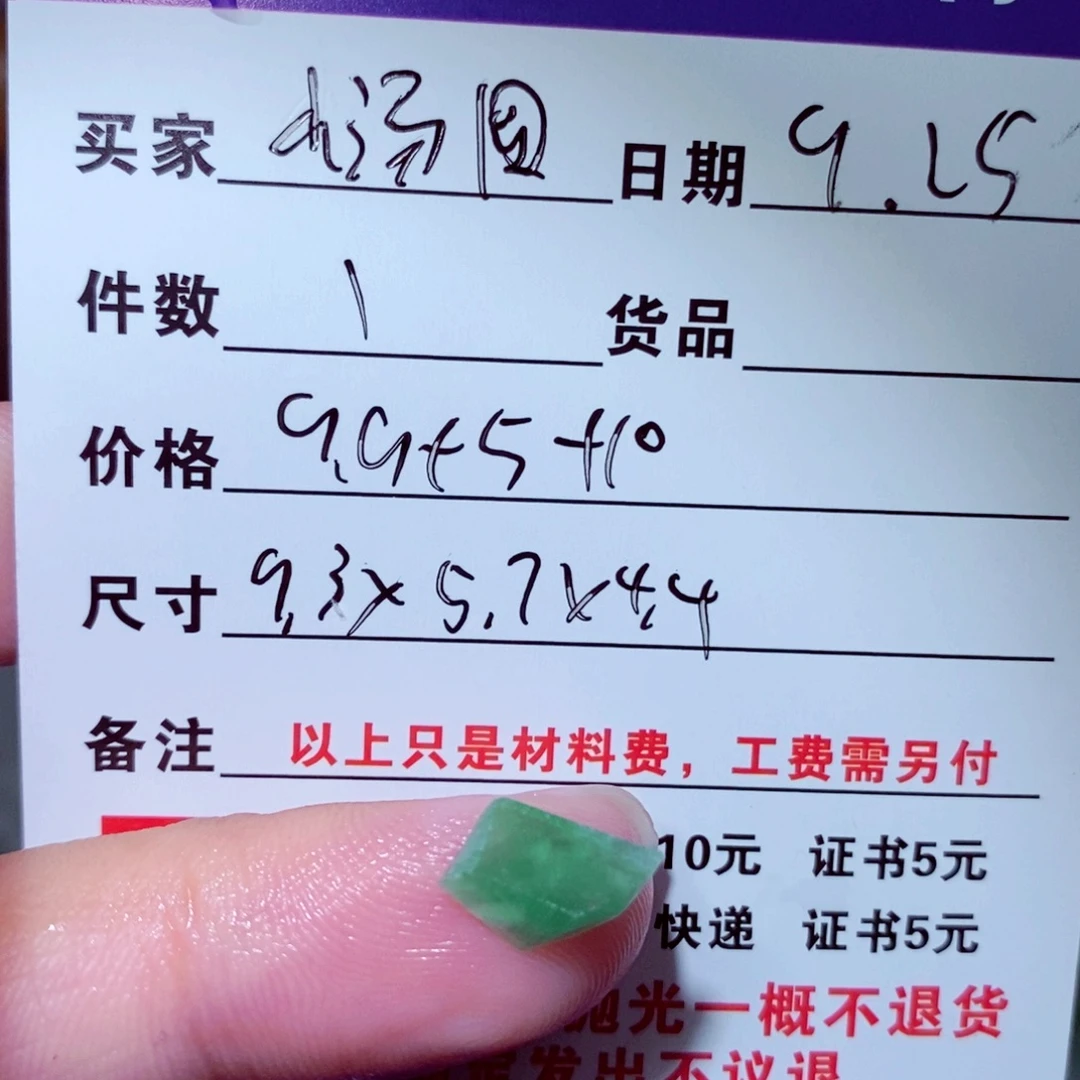 买家 小汤圆 日期 9.25
件数 1 货品
价格 9.9+5+10
尺寸 9.3x5.7x4.4
备注 以上只是材料费，工费需另付
10元 证书5元
快递 证书5元
抛光一概不退货
发出不议退